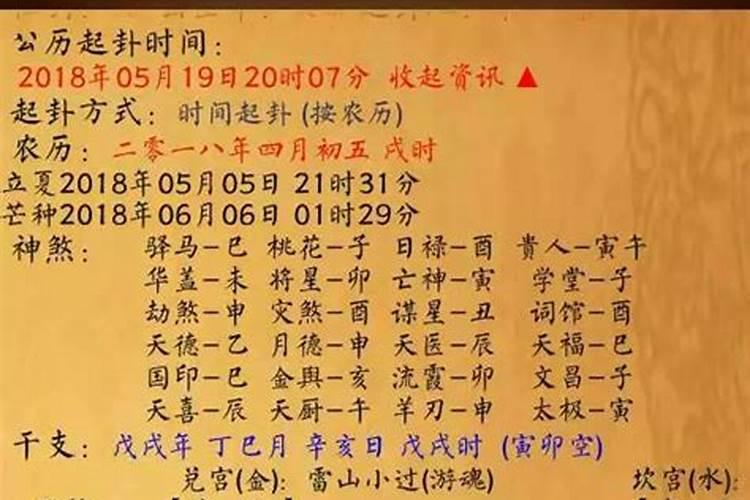 公历起卦时间：
2018年05月19日20时07分 收起资讯 ▲
起卦方式：时间起卦(按农历)
农历：二零一八年四月初五 戌时
立夏2018年05月05日 21时31分
芒种2018年06月06日 01时29分
神煞： 驿马—巳 桃花—子 日禄—酉 貴人—寅午
华盖—未 将星—卯 亡神—寅 学堂—子
劫煞—申 灾煞—酉 谋星—丑 词馆—酉
天德—乙 月德—申 天医—辰 天福—巳
国印—巳 金舆—亥 流霞—卯 文昌—子
天喜—辰 天厨—午 羊刃—申 太极—寅
干支：戊戌年 丁巳月 辛亥日 戊戌时 (寅卯空)
兑宫(金)：雷山小过(游魂) 坎宫(水)：